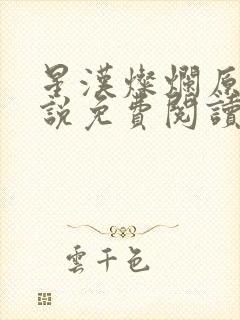 星漢燦爛原
說免費閱讀
雲千色